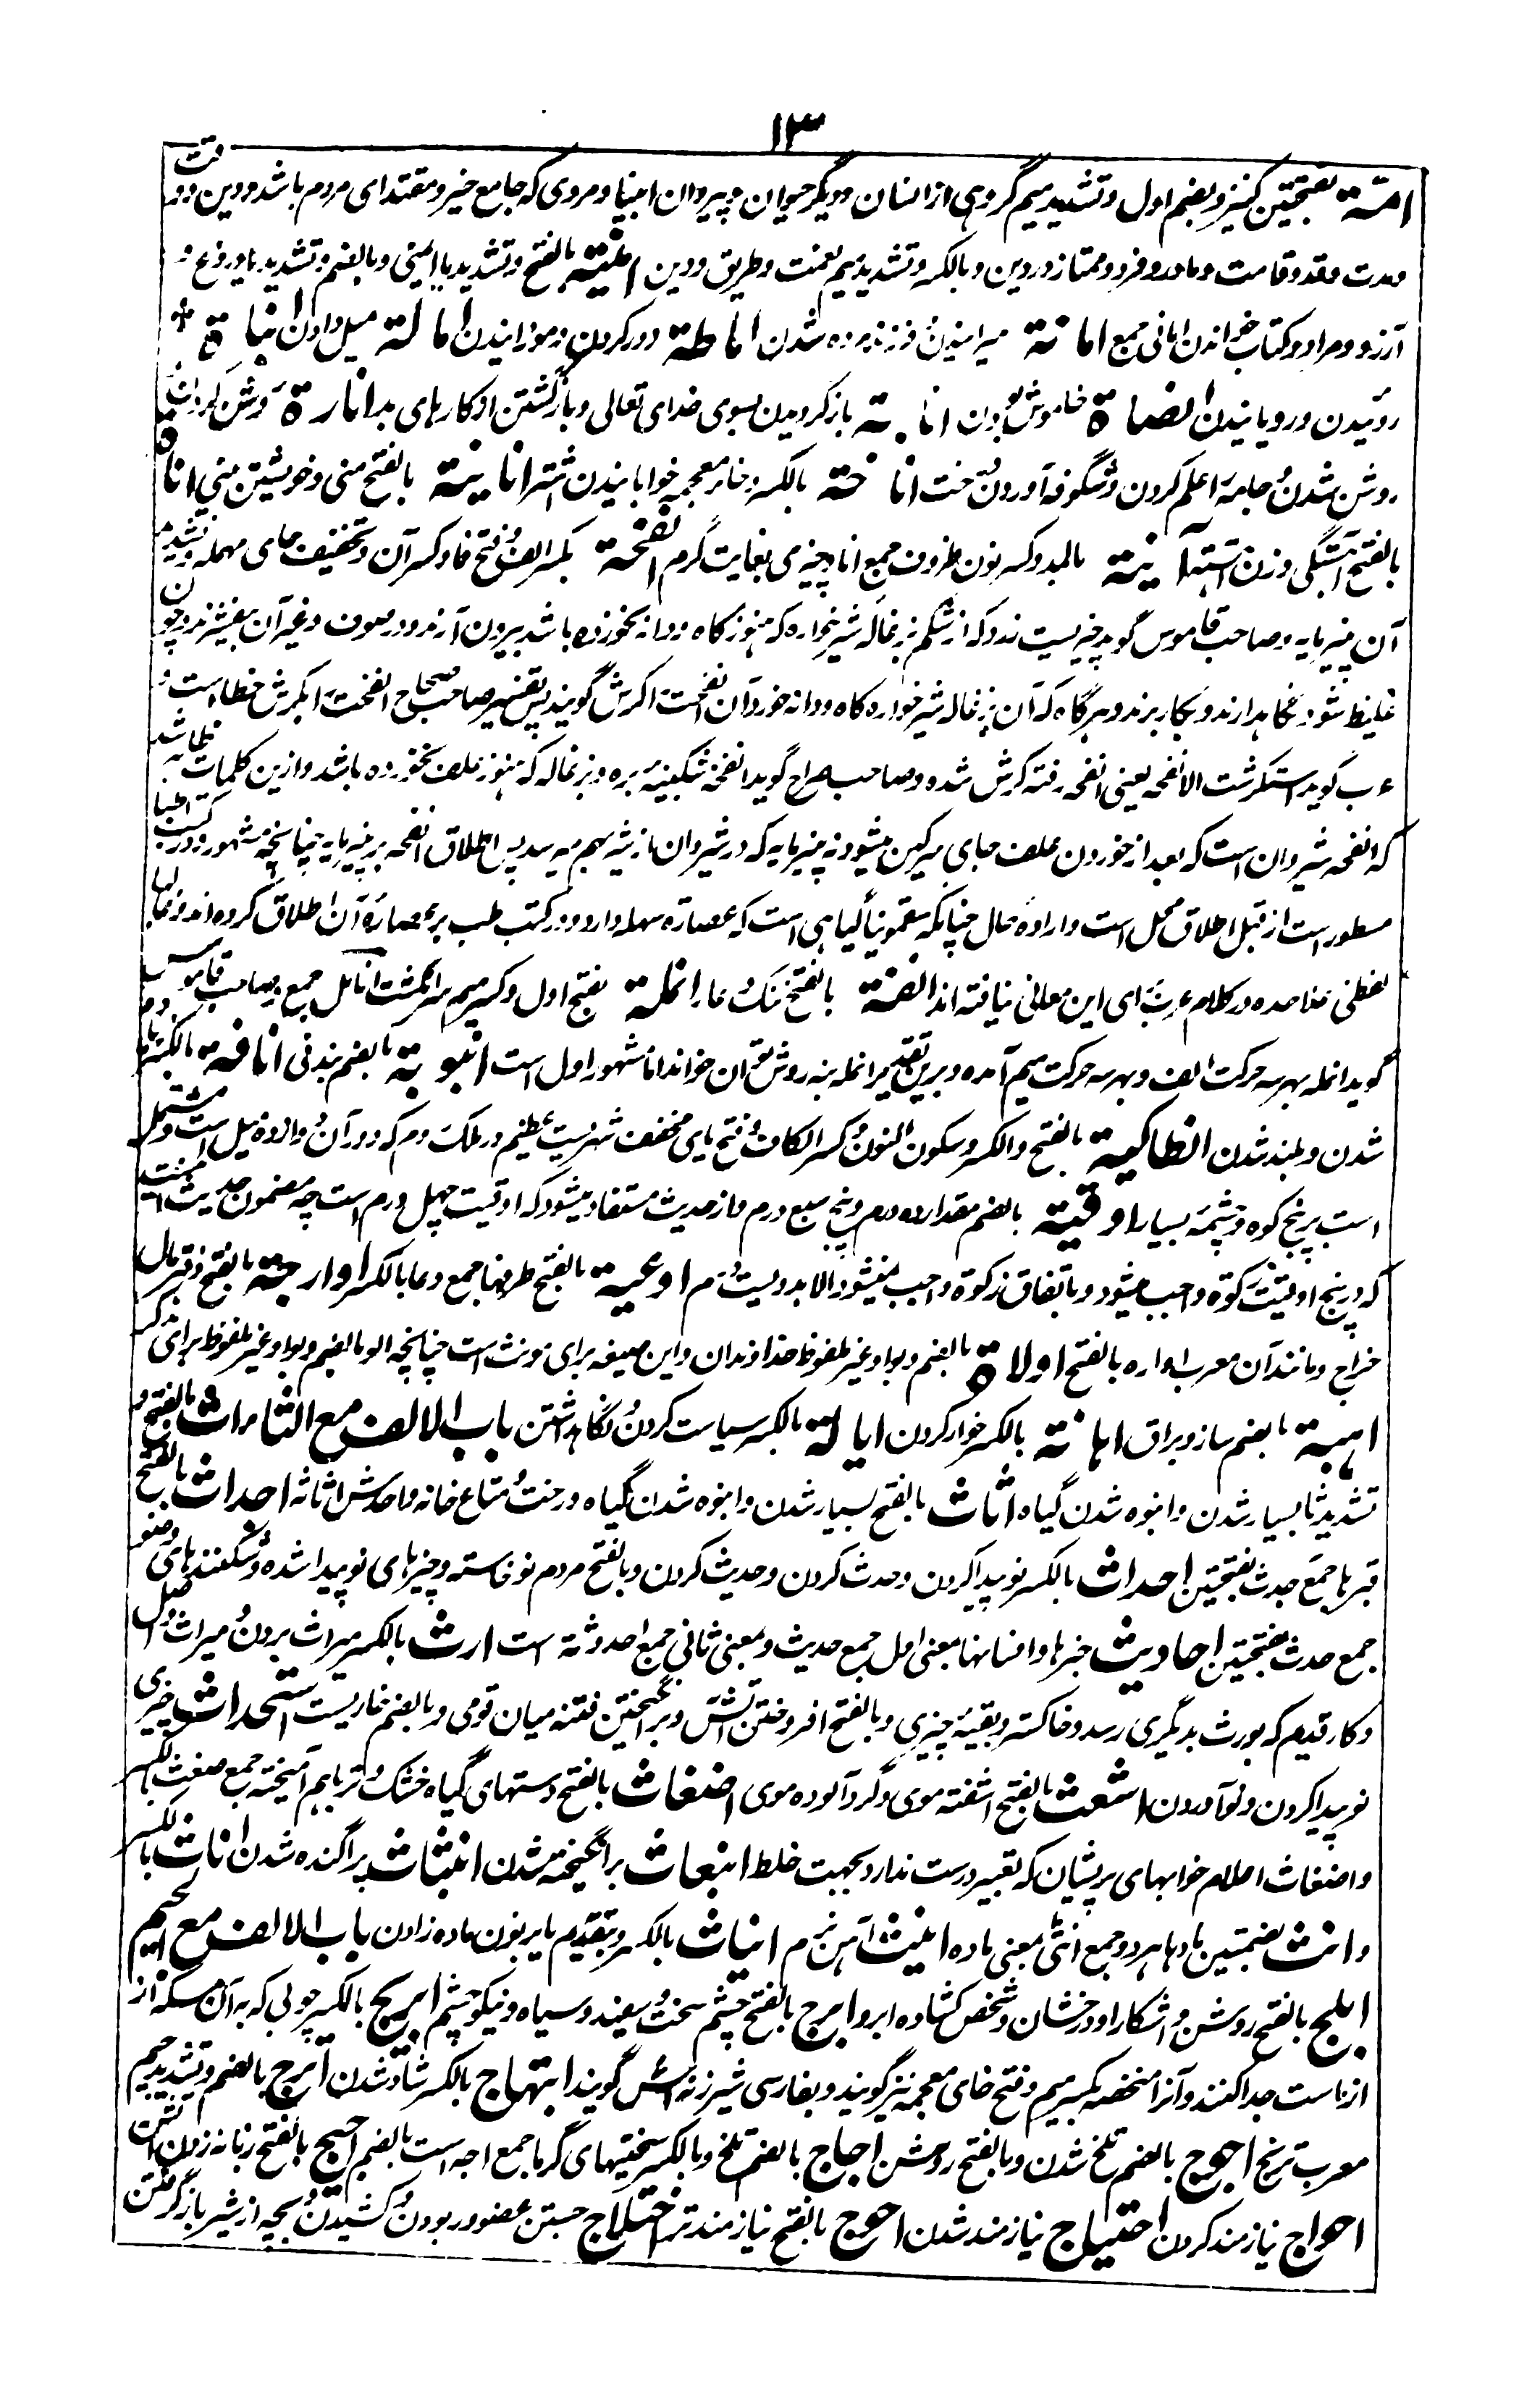 ١٣
امة بفتحتین کنیز و بضم اول و تشدید میم گروهی از انسان و دیگر حیوان و پیروان انبیا و مردی که جامع خیر و مقتدای مردم باشد و دین و وقت
و مدت و قد و قامت و مادر و فرد و ممتاز در دین و بالکسر و تشدید میم نعمت و طریق و دین امنیة بالفتح و تشدید یا ایمنی و بالضم و تشدید یا دروغ و
آرزو و مراد و کتاب خواندن امانی جمع اماتة میرانیدن و فرزند مرده شدن اماطة دور کردن و دور گردانیدن امالة میل دادن انباة
روئیدن و رویانیدن انصاة خاموش بودن انابة باز گردیدن بسوی خدای تعالی و بازگشتن از کارهای بد انارة روشن کردن و
روشن شدن و جامه را علم کردن و شگوفه آوردن درخت اناخة بالکسر و خاء معجمه خوابانیدن شتر انانیة بالفتح منی و خویشتن بینی اناة
بالفتح آهستگی و زن آهسته آنیة بالمد و کسر نون ظروف جمع انا و چیزی بغایت گرم انفحة بکسر الف و فتح فا و کسر آن و تخفیف حای مهمله و تشدید
آن پنیر مایه و صاحب قاموس گوید چیزیست زرد که از شکم بزغاله شیر خواره که هنوز کاه و دانه نخورده باشد بیرون آرند و در صوف و غیر آن بیفشرند و چون
غلیظ شود نگاهدارند و بکار برند و هرگاه که آن بزغاله شیر خواره کاه و دانه خورد آن انفحت را کرش گویند پس تفسیر صاحب صحاح انفحت را بکرش خطا است و
عرب گوید استکرشت الانفحه یعنی انفحه رفته کرش شده و صاحب صراح گوید انفحه شکنبهٔ بره و بزغاله که هنوز علف نخورده باشد و ازین کلمات ظاهر شد
که انفحه شیردان است که بعد از خوردن علف جای سرگین میشود نه پنیر مایه که در شیردان از شیر بهم میرسد پس اطلاق انفحه بر پنیر مایه چنانچه مشهور و در کتب اطبا
مسطور است از قبیل اطلاق محل است و اراده حال چنانکه سقمونیا گیاهی است که عصاره مسهله دارد و در کتب طب بر عصارهٔ آن اطلاق کرده اند و غالبا
لفظی علاحده در کلام عرب برای این معانی نیافته اند انفة بالفتح ننگ و عار انملة بفتح اول و کسر میم سر انگشت انامل جمع و صاحب قاموس
گوید انمله بهر سه حرکت الف و بهر سه حرکت میم آمده و برین تقدیر انمله بنه روش توان خواند اما مشهور اول است انبوبة بالضم بند نی انافة بالکسر
شدن و بلند شدن انطاکیة بالفتح و الکسر و سکون النون و کسر الکاف و فتح یای مخفف شهریست عظیم در ملک روم که دور آن دوازده میل است و مشتمل
است بر پنج کوه و چشمه بسیار اوقیة بالضم مقدار ده درم و پنج سبع درم و از حدیث مستفاد میشود که اوقیت چهل درم است چه مضمون حدیث
که در پنج اوقیت زکوة واجب میشود و باتفاق زکوة واجب نمیشود الا بدویست درم اوعیة بالفتح ظرفها جمع وعا بالکسر اوارجة بالفتح دفتر مال
خراج و مانند آن معرب اواره بالفتح اولاة بالضم و بواو غیر ملفوظ خداوندان و این صیغه برای مونث است چنانچه الو بالضم و بواو غیر ملفوظ برای مذکر
اهبة بالضم ساز و یراق اهانة بالکسر خوار کردن ایالة بالکسر سیاست کردن و نگاهداشتن باب الالف مع الثاء اث بالفتح و
تشدید ثا بسیار شدن و انبوه شدن گیاه اثاث بالفتح بسیار شدن و انبوه شدن گیاه و رخت و متاع خانه واحدش اثاثه اجداث بالفتح
قبرها جمع جدث بفتحتین احداث بالکسر نو پیدا کردن و حدث کردن و حدیث کردن و بالفتح مردم نو خاسته و چیزهای نو پیدا شده و شکنندهای وضو
جمع حدث بفتحتین احادیث خبرها و افسانها بمعنی اول جمع حدیث و بمعنی ثانی جمع احدوثة است ارث بالکسر میراث بردن و میراث و اصل
و کار قدیم که بورث بدیگری رسد و خاکستر و بقیهٔ چیزی و بالفتح افروختن آتش و برانگیختن فتنه میان قومی و بالضم خاریست استحداث چیزی
نو پیدا کردن و نو آوردن اشعث بالفتح آشفته موی و گرد آلوده موی اضغاث بالفتح دستهای گیاه خشک و تر باهم آمیخته جمع ضغث بالکسر
و اضغاث احلام خوابهای پریشان که تعبیر درست ندارد بجهت خلط انبعاث برانگیخته شدن انبثاث پراگنده شدن اناث بالکسر
و انث بضمتین مادها هر دو جمع انثی بمعنی ماده انیث آهن نرم ایناث بالکسر و بتقدیم یا بر نون ماده زادن باب الالف مع الجیم
ابلج بالفتح روشن و آشکارا و درخشان و شخص کشاده ابرو ابرج بالفتح چشم سخت سفید و سیاه و نیکو چشم ابریج بالکسر چوبی که به آن مسکه را از
از ماست جدا کنند و آنرا ممخضه بکسر میم و فتح خای معجمه نیز گویند و بفارسی شیرزنه اش گویند ابتهاج بالکسر شاد شدن اترج بالضم و تشدید جیم
معرب ترنج اجوج بالضم تلخ شدن و بالفتح روشن اجاج بالضم تلخ و بالکسر سختیهای گرما جمع اجه است بالضم اجیج بالفتح زبانه زدن آتش
احواج نیازمند کردن احتیاج نیازمند شدن احوج بالفتح نیازمندتر اختلاج جستن عضو و ربودن و کشیدن و بچه از شیر باز گرفتن